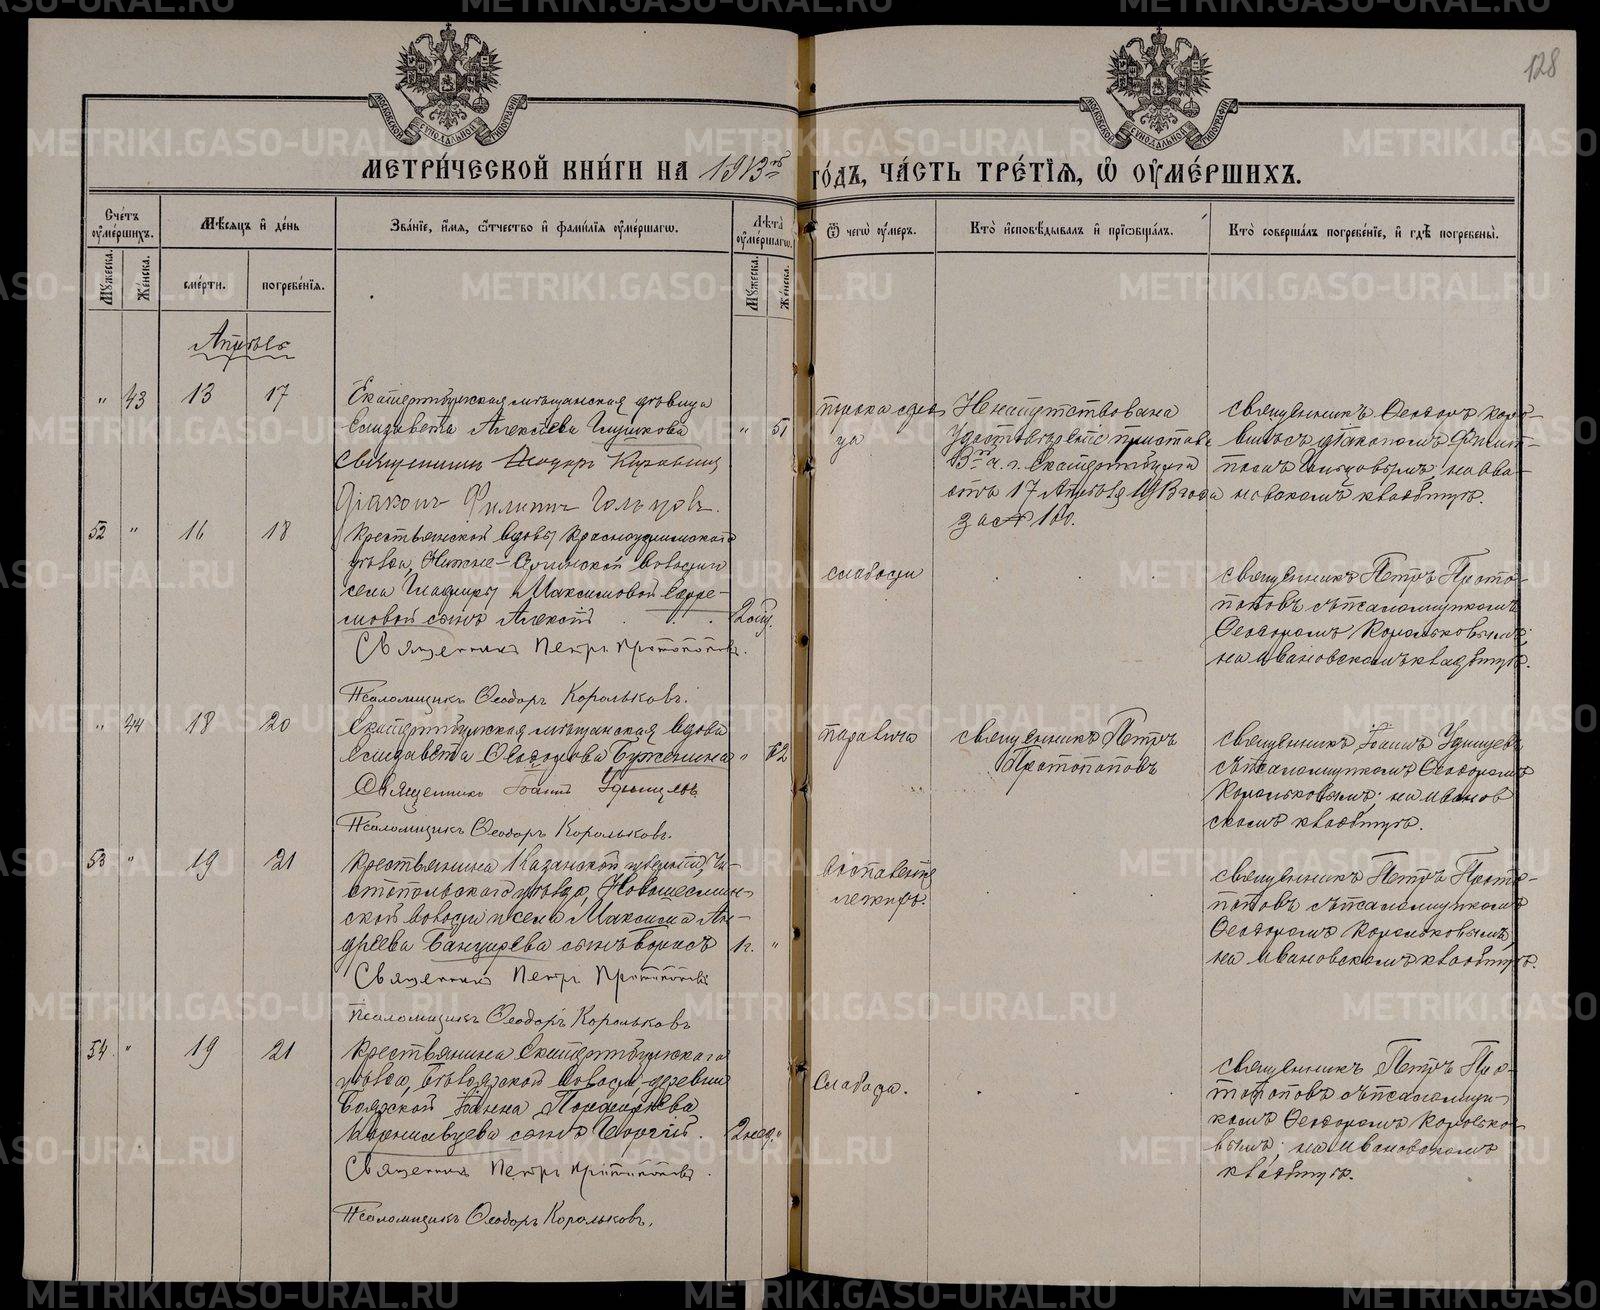 128
МОСКОВСКОЙ СѴНОДАЛЬНОЙ ТИПОГРАФІИ
МОСКОВСКОЙ СѴНОДАЛЬНОЙ ТИПОГРАФІИ
МЕТРИ́ЧЕСКОЙ КНИ́ГИ НА 1913й ГО́ДЪ, ЧА́СТЬ ТРЕ́ТІѦ, Ѡ ОУМЕ́РШИХЪ.
Сче́тъ оуме́ршихъ.
Мꙋжеска.
Же́нска.
Мѣ́сяцъ и де́нь
сме́рти.
погребе́нія.
Зва́ніе, и́мя, ѻ҆́тчество и фами́лія оуме́ршагѡ.
Лѣ́та оуме́ршагѡ.
Мꙋжеска.
Же́нска.
Ѿ чегѡ̀ оу́меръ.
Кто̀ исповѣ́дывалъ и прїѡбща́лъ.
Кто̀ соверша́лъ погребе́ніе, и гдѣ̀ погребены̀.
Апрѣль
" 43 13 17
Екатеринбургская мѣщанская дѣвица
Елизавета Алексѣева Глушкова " 51
Священникъ Ѳеодоръ Коровинъ
Діаконъ Филиппъ Гольцовъ.
порока серд-
ца
Ненапутствована
Удостовѣреніе пристава
3й ч. г. Екатеринбурга
отъ 17 Апрѣля 1913 года
за № 160.
священникъ Ѳеодоръ Коро-
винъ съ діакономъ Филип-
помъ Гольцовымъ; на Ива-
новскомъ кладбищѣ.
52 " 16 18
Крестьянской вдовы Красноуфимскаго
уѣзда, Нижне-Сергинской волости
села Гладиры Максимовой Ефре-
мовой сынъ Алексій 2
Священникъ Петръ Протопоповъ.
Псаломщикъ Ѳеодоръ Корольковъ.
слабости
священникъ Петръ Прото-
поповъ съ псаломщикомъ
Ѳеодоромъ Корольковымъ;
на Ивановскомъ кладбищѣ.
" 44 18 20
Екатеринбургская мѣщанская вдова
Елизавета Ѳеодорова Буженина " 82
Священникъ Іоаннъ Удинцевъ
Псаломщикъ Ѳеодоръ Корольковъ.
паралича
священникъ Петръ
Протопоповъ
священникъ Іоаннъ Удинцевъ
съ псаломщикомъ Ѳеодоромъ
Корольковымъ; на Иванов
скомъ кладбищѣ.
53 " 19 21
Крестьянина Казанской губерніи, Чи-
стопольскаго уѣзда, Новошешмин-
ской волости и села Максима Ан-
дреева сынъ Борисъ 1г. "
Священникъ Петръ Протопоповъ
Псаломщикъ Ѳеодоръ Корольковъ
воспаленіе
легкихъ.
священникъ Петръ Прото-
поповъ съ псаломщикомъ
Ѳеодоромъ Корольковымъ;
на Ивановскомъ кладбищѣ.
54 " 19 21
Крестьянина Екатеринбургскаго
уѣзда, Бѣлоярской волости деревни
Боярской Іоанна
сынъ Георгій. 2 нед. "
Священникъ Петръ Протопоповъ.
Псаломщикъ Ѳеодоръ Корольковъ.
Слабость.
священникъ Петръ Про-
топоповъ съ псаломщи-
комъ Ѳеодоромъ Королько-
вымъ; на Ивановскомъ
кладбищѣ.
METRIKI.GASO-URAL.RU